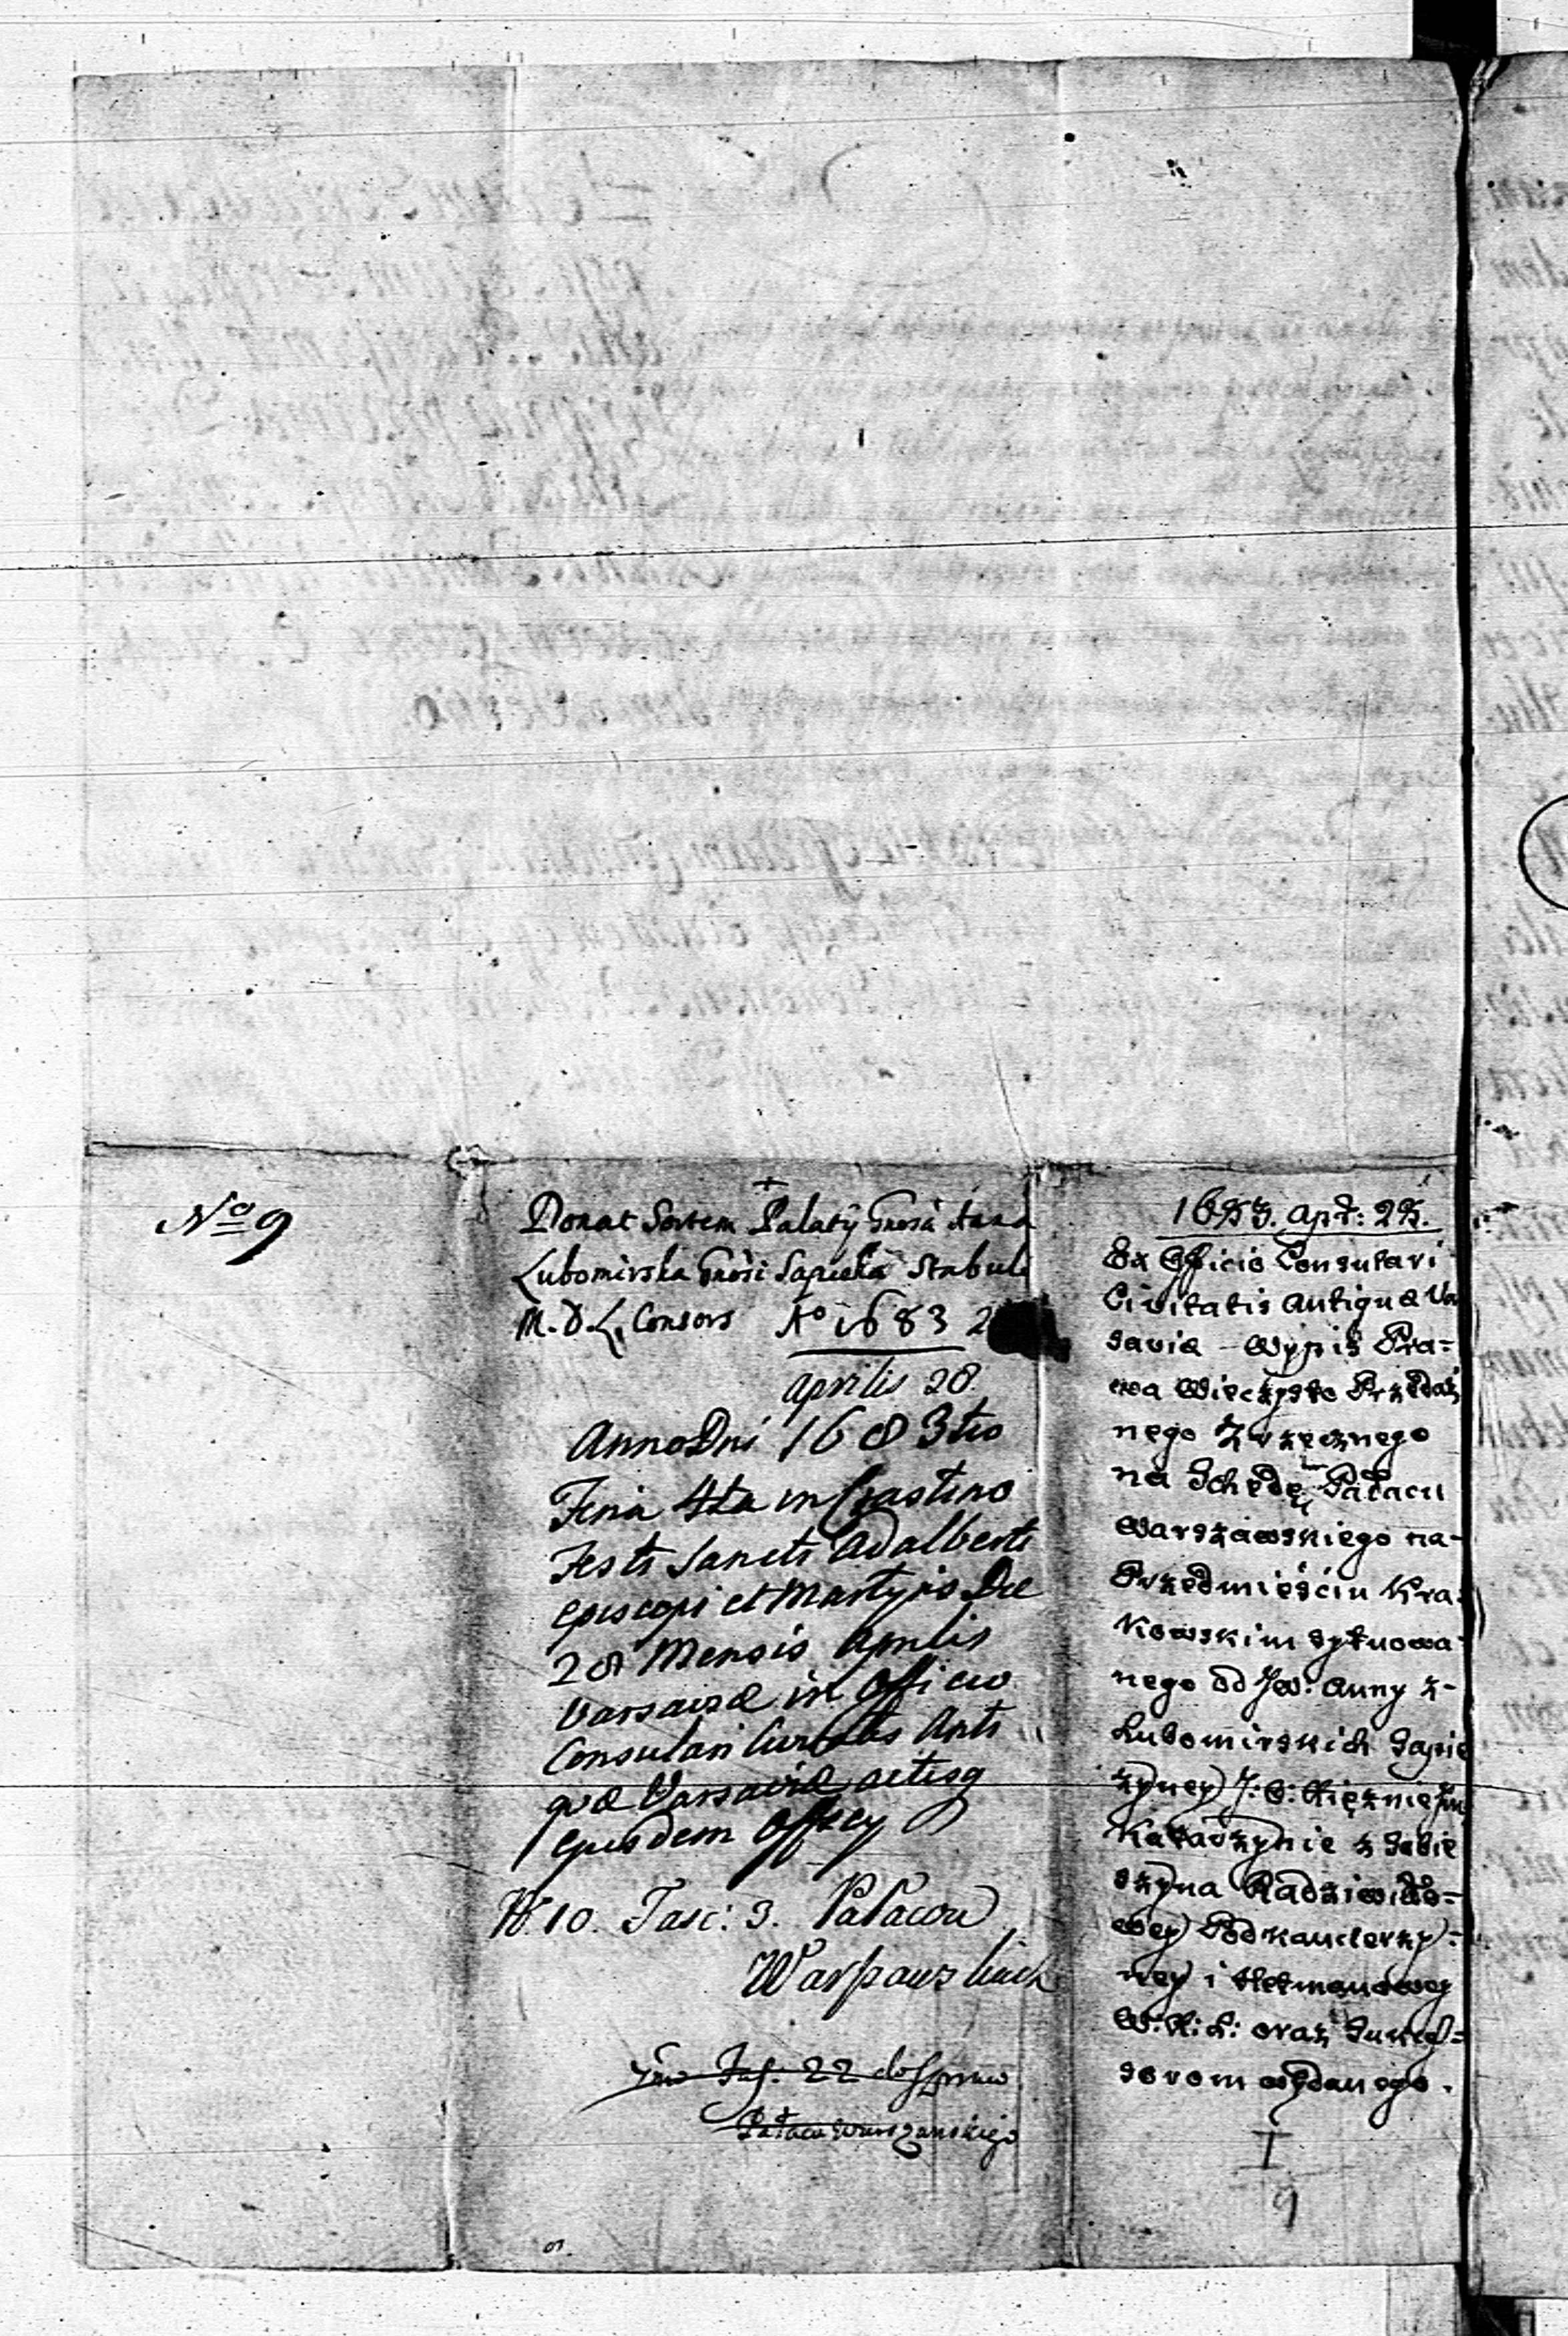 No 9
Donat Sortem Palatÿ Gnosa Anna
Lubomirska Gnosi Sapieha Stabuli
M. D. L. Consors Ao 1683 2
Aprilis 28
Anno Dni 1683tio
Feria 4ta in Crastino
Festi Sancti Adalberti
Episcopi et Martyris Die
28 Mensis Aprilis
Varsaviæ in Officio
Consulari Civitatis Anti
quæ Varsaviæ actisq
ejusdem Officy
N 10. Fasc: 3. Pałacow
Warszawskich
Fas. 22 do Spraw
Pałacu Warszawskiego
1683. Apr: 28.
Ex Officio Consulari
Civitatis Antiquæ Var
saviæ Wypis Pra=
wa Wieczysto Przedaż
nego Zrzecznego
na Schedę Pałacu
Warszawskiego na
Przedmieściu Kra
kowskim sytuowa
nego od Jw: Anny z
Lubomirskich Sapie
żyney J: O: Xiężnie Jm
Katarzynie z Sobie
szyna Radziwiłło=
wey Podkanclerzy=
ney i Hetmanowey
W: X: L: oraz Sukces=
sorom wydanego.
I
9